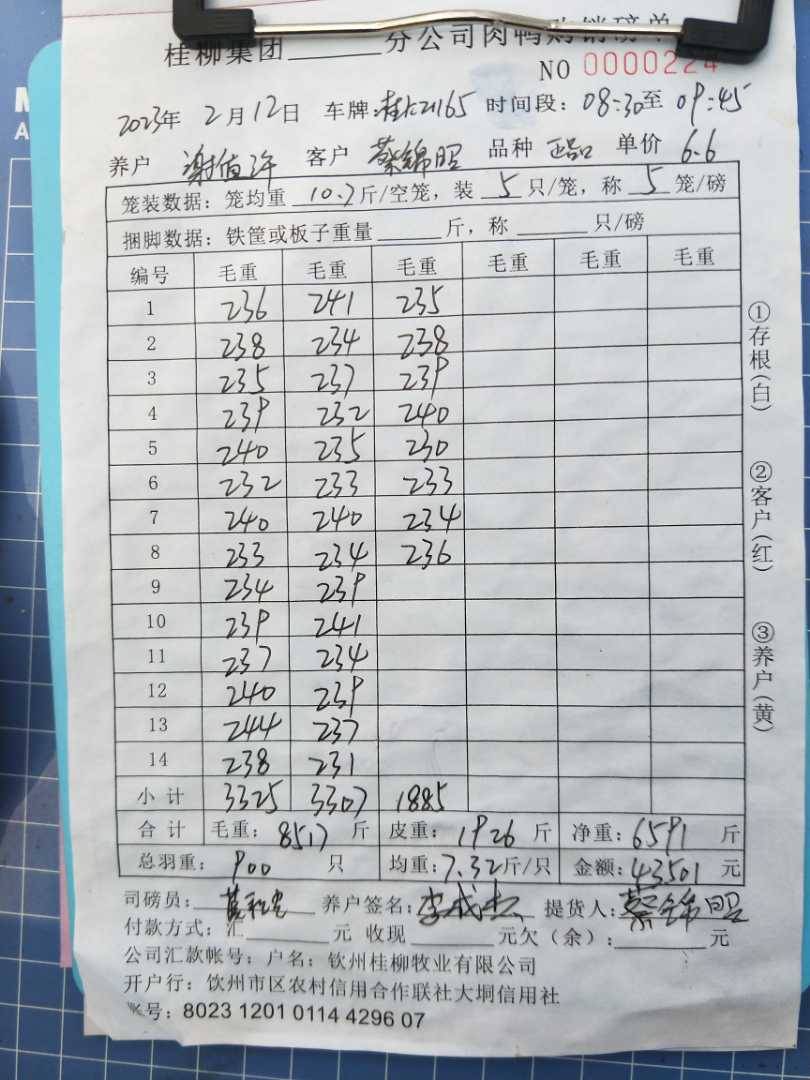 桂柳集团______分公司肉鸭购销磅单
NO 0000224
2023年 2月12日 车牌:桂K21165 时间段: 08:30至 09:45
养户 谢 客户 蔡锦昭 品种 正品 单价 6.6
笼装数据: 笼均重 10.7斤/空笼, 装 5 只/笼, 称 5 笼/磅
捆脚数据: 铁筐或板子重量______斤, 称______只/磅
编号 毛重 毛重 毛重 毛重 毛重 毛重
1 236 241 235
2 238 234 238
3 235 237 239
4 239 232 240
5 240 235 230
6 232 233 233
7 240 240 234
8 233 234 236
9 234 239
10 239 241
11 237 234
12 240 239
13 244 237
14 238 231
小计 3325 3307 1885
合计 毛重: 8517 斤 皮重: 1926 斤 净重: 6591 斤
总羽重: 900 只 均重: 7.32斤/只 金额: 43501 元
司磅员: 养户签名: 李成杰 提货人: 蔡锦昭
付款方式: 汇______元 收现______元欠(余):______元
公司汇款帐号: 户名: 钦州桂柳牧业有限公司
开户行: 钦州市区农村信用合作联社大垌信用社
号: 8023 1201 0114 4296 07
①存根(白)
②客户(红)
③养户(黄)